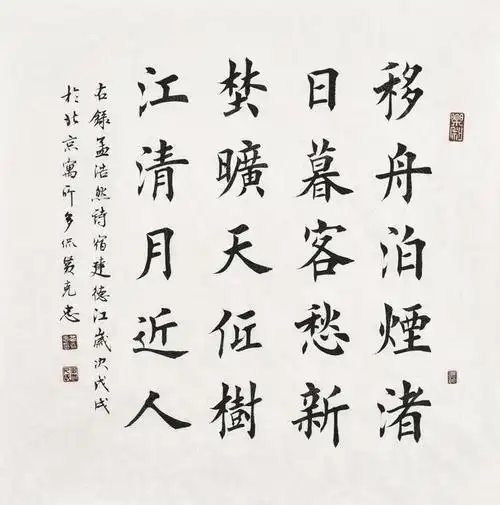 移舟泊煙渚
日暮客愁新
埜曠天低樹
江清月近人
右錄孟浩然詩宿建德江歲次戊戌
於北京寓所 侃黄克忠